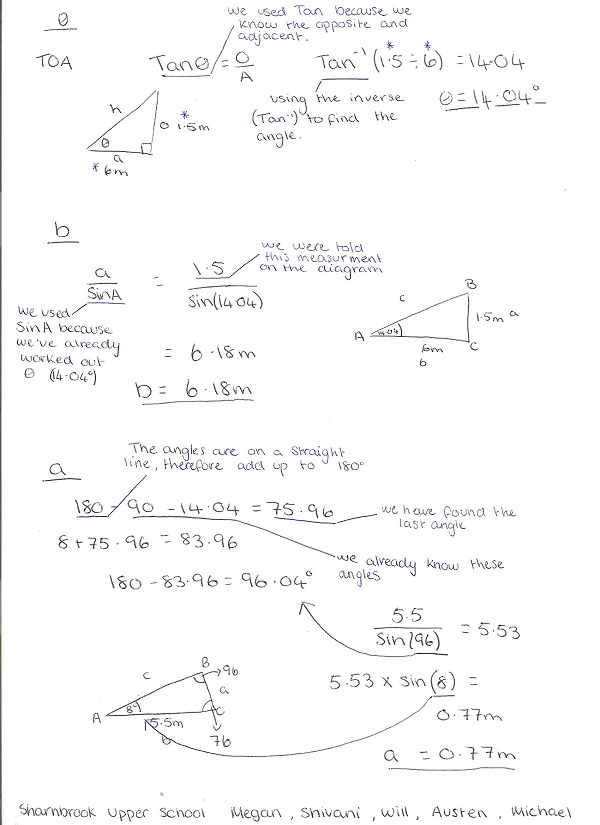 θ
we used Tan because we
know the opposite and
adjacent.
TOA
Tanθ = O/A
Tan⁻¹ (1.5 ÷ 6) = 14.04
* *
using the inverse
(Tan⁻¹) to find the
angle.
θ = 14.04°
h
θ
a
* 6m
*
O 1.5m
b
we were told
this measurment
on the diagram
a/SinA = 1.5/sin(14.04)
we used
SinA because
we've already
worked out
θ (14.04°)
= 6.18m
b = 6.18m
B
c
1.5m a
A
14.04
6m
C
b
The angles are on a straight
line, therefore add up to 180°
a
180 - 90 - 14.04 = 75.96
we have found the
last angle
8 + 75.96 = 83.96
we already know these
angles
180 - 83.96 = 96.04°
5.5/Sin(96) = 5.53
5.53 x sin(8) =
0.77m
a = 0.77m
B
96
c
a
A
8°
C
5.5m
b
76
Sharnbrook Upper School Megan, Shivani, Will, Austen, Michael